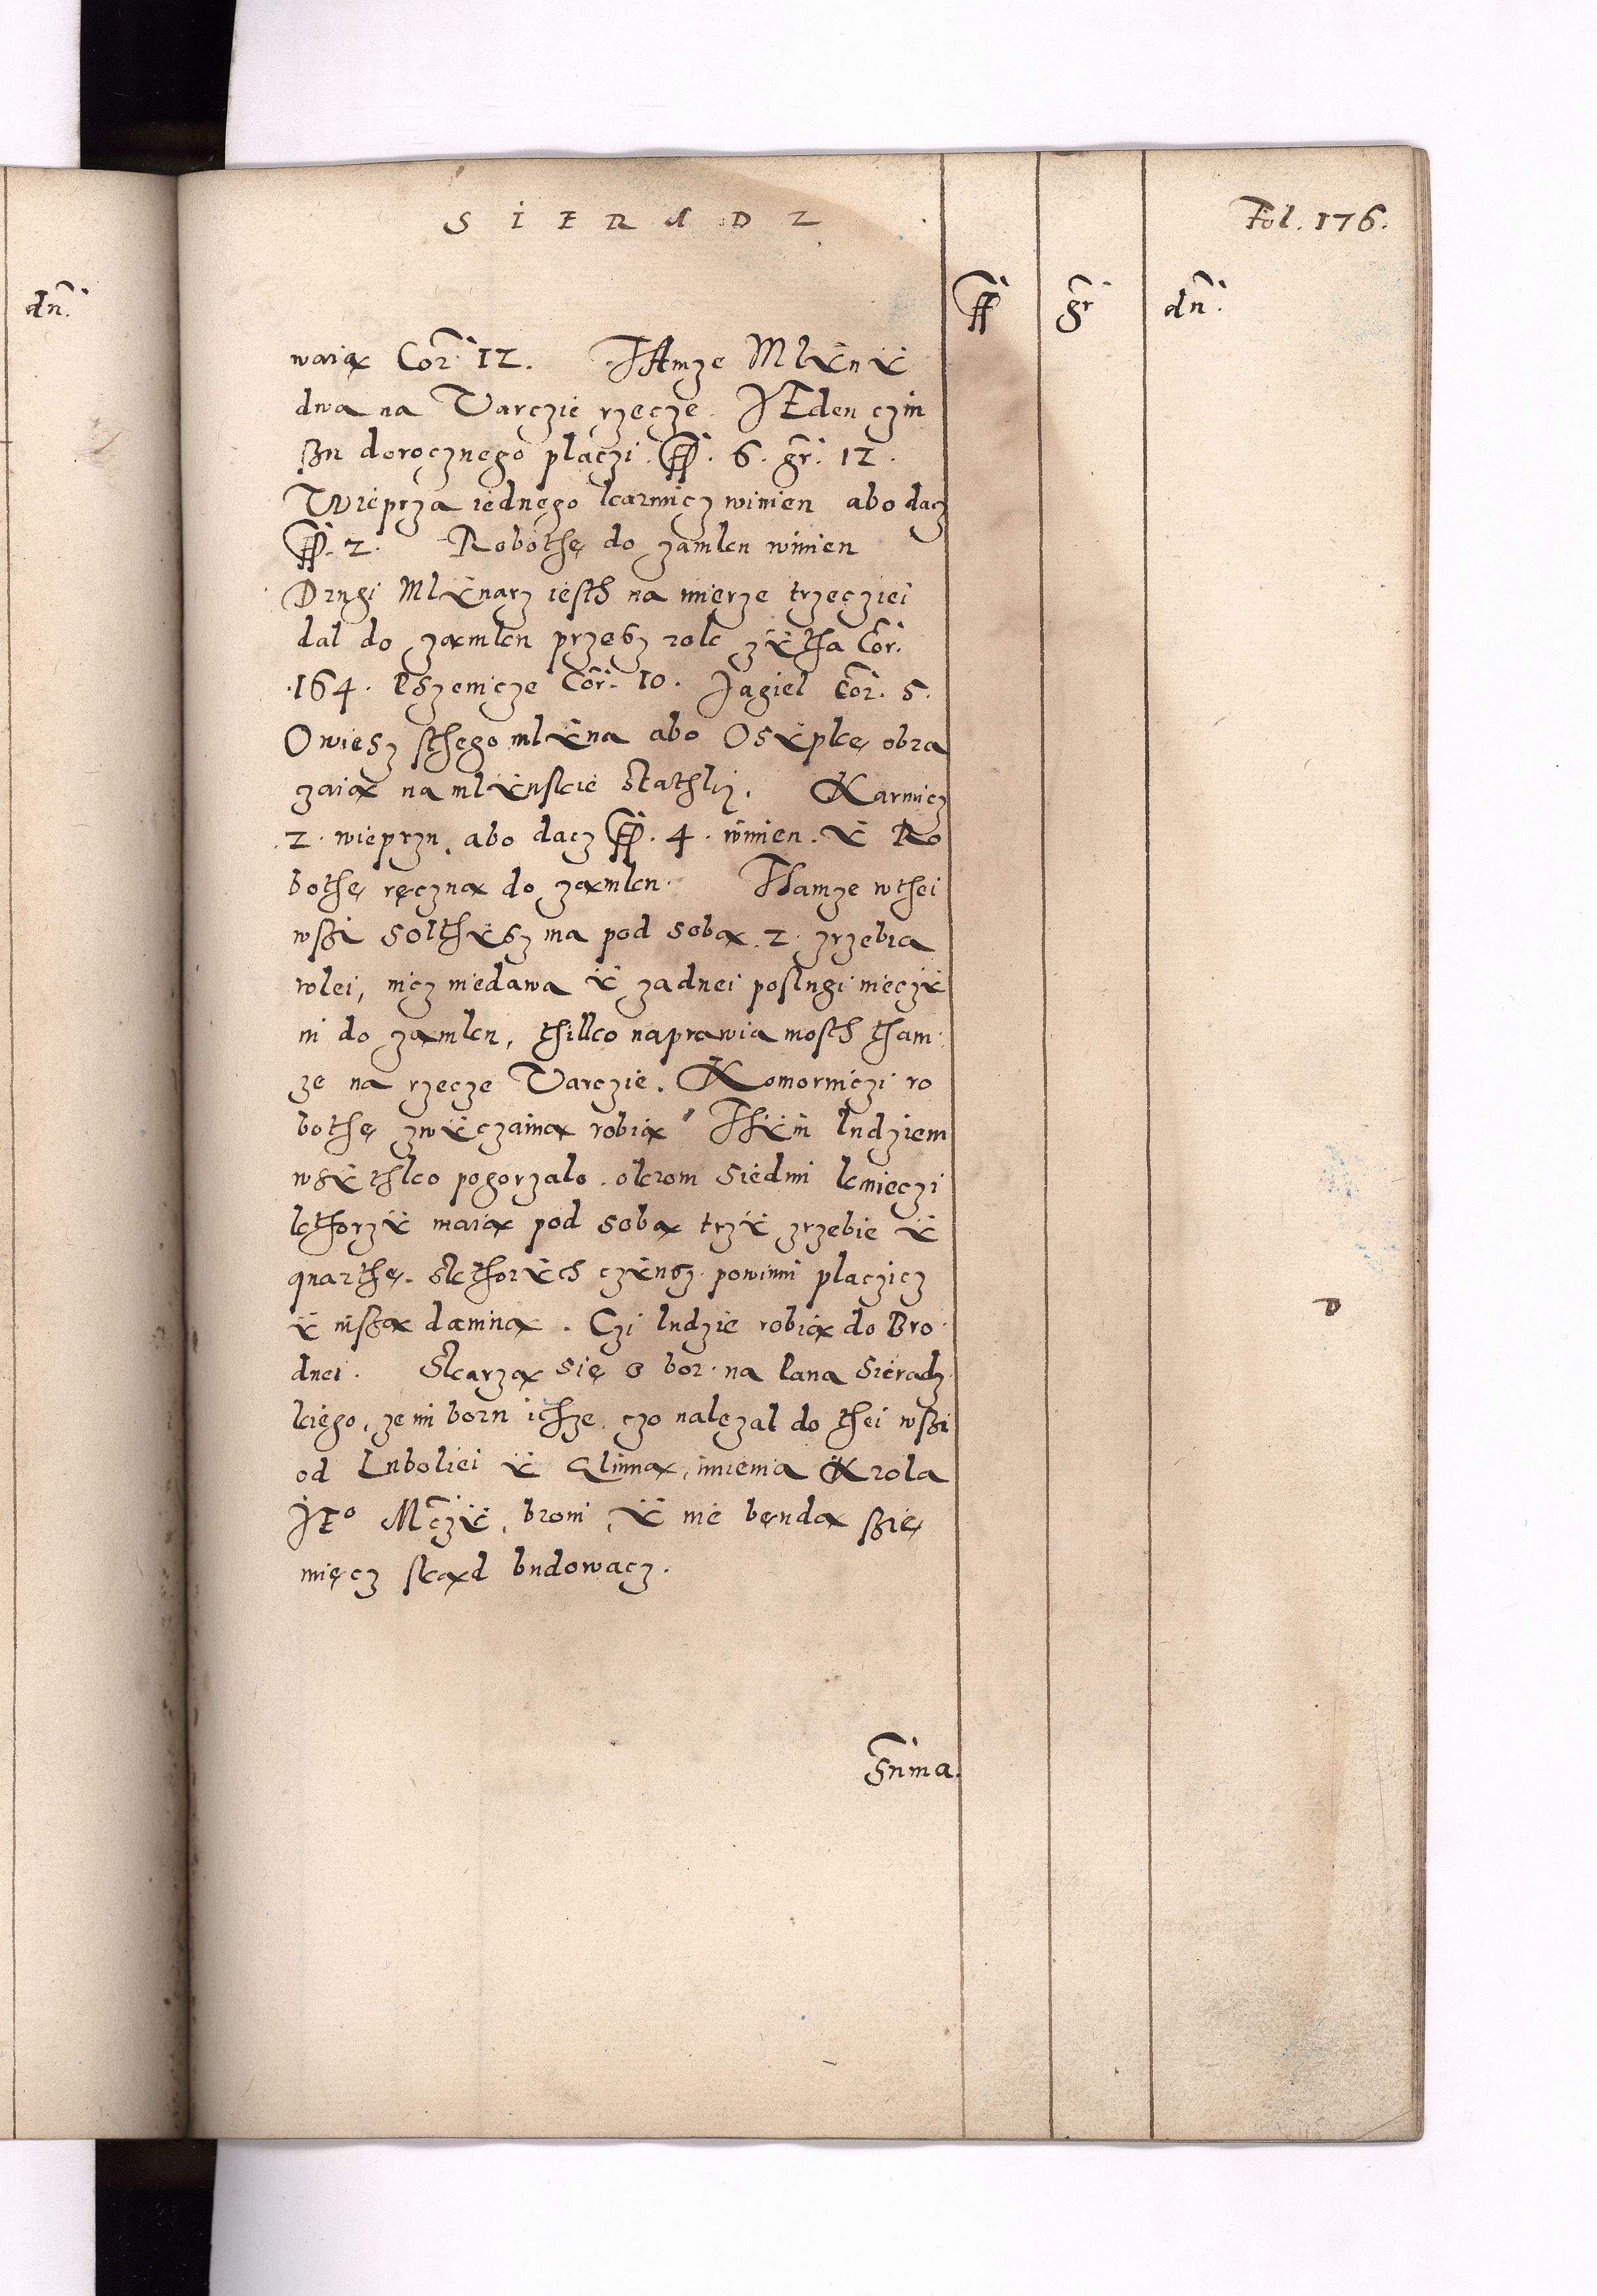 SIERADZ
Fol. 176.
dn.
ff gr dn.
waią Cor. 12. TAmze Mlÿnÿ
dwa na Varczie rzecze. JEden czin
szu dorocznego placzi. ff. 6. gr. 12.
Wieprza iednego karmicz winien abo dacz
ff. 2. Robothę do zamku winien
Drugi Mlÿnarz iesth na mierze trzecziei
dal do zamku przesz rok zÿtha Cor.
164. Pszenicze Cor. 10. Jagiel Cor. 5.
Owiesz sthego mlÿna abo Osÿpkę obra
czaią na mlÿnskie Stathki. Karmicz
2. wieprzu abo dacz ff. 4. winien. ÿ Ro
bothę ręczną do zamku. Thamze wthei
wszi Solthÿsz ma pod sobą 2. zrzebia
rolei, nicz niedawa ÿ zadnei poslugi nieczÿ
ni do zamku, thilko naprawia mosth tham
ze na rzecze Varczie. Komorniczi ro
bothę zwÿczainą robią Thÿm ludziem
wsÿthko pogorzalo. okrom Siedmi kmieczi
kthorzÿ maią pod sobą trzÿ zrzebie ÿ
quarthę. Skthorÿch czÿnsz powinni placzicz
ÿ inszą daniną. Czi ludzie robią do Bro
dnei. Skarzą się o bor na Pana Sieradz
kiego, ze im boru ichze czo nalezal do thei wszi
od Luboliei ÿ Glinną, imienia Krola
JEo Mczÿ, broni, ÿ nie bęndą szię
mięcz skąd budowacz.
Suma.